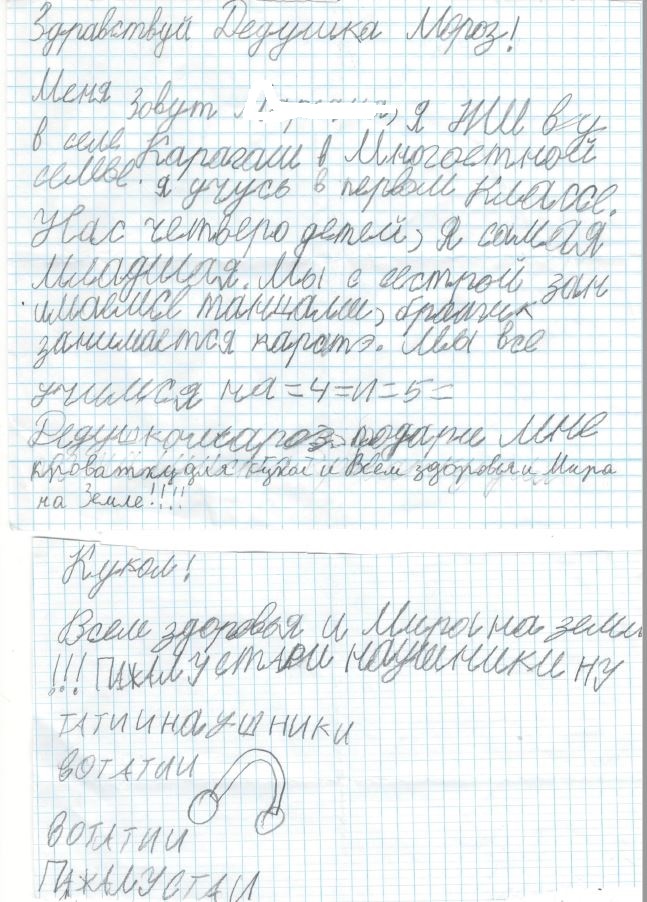 Здравствуй Дедушка Мороз!
Меня зовут я жи ву
в селе Карагаш в Многоетной
семье. я учусь в первом классе.
Нас четверо детей, я самая
младшая. Мы с сестрой зан
имаемсе танцами, братик
занимается каратэ. Мы все
учимся на =4=и=5=
подари мне
кроватку для кукол и Всем здоровья и Мира
на Земле!!!!
Кукол!
Всем здоровья и Мира на земли
!!! ПАЖАЛУСТА И наушники ну
ТАТИ И НАУШНИКИ
ВОТАТИИ
ВОТАТИИ
ПАЖАЛУСТА И